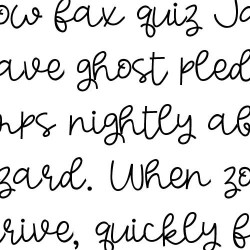 ow fax quiz Ja
ave ghost pled
mps nightly ab
zard. When zo
rive, quickly f